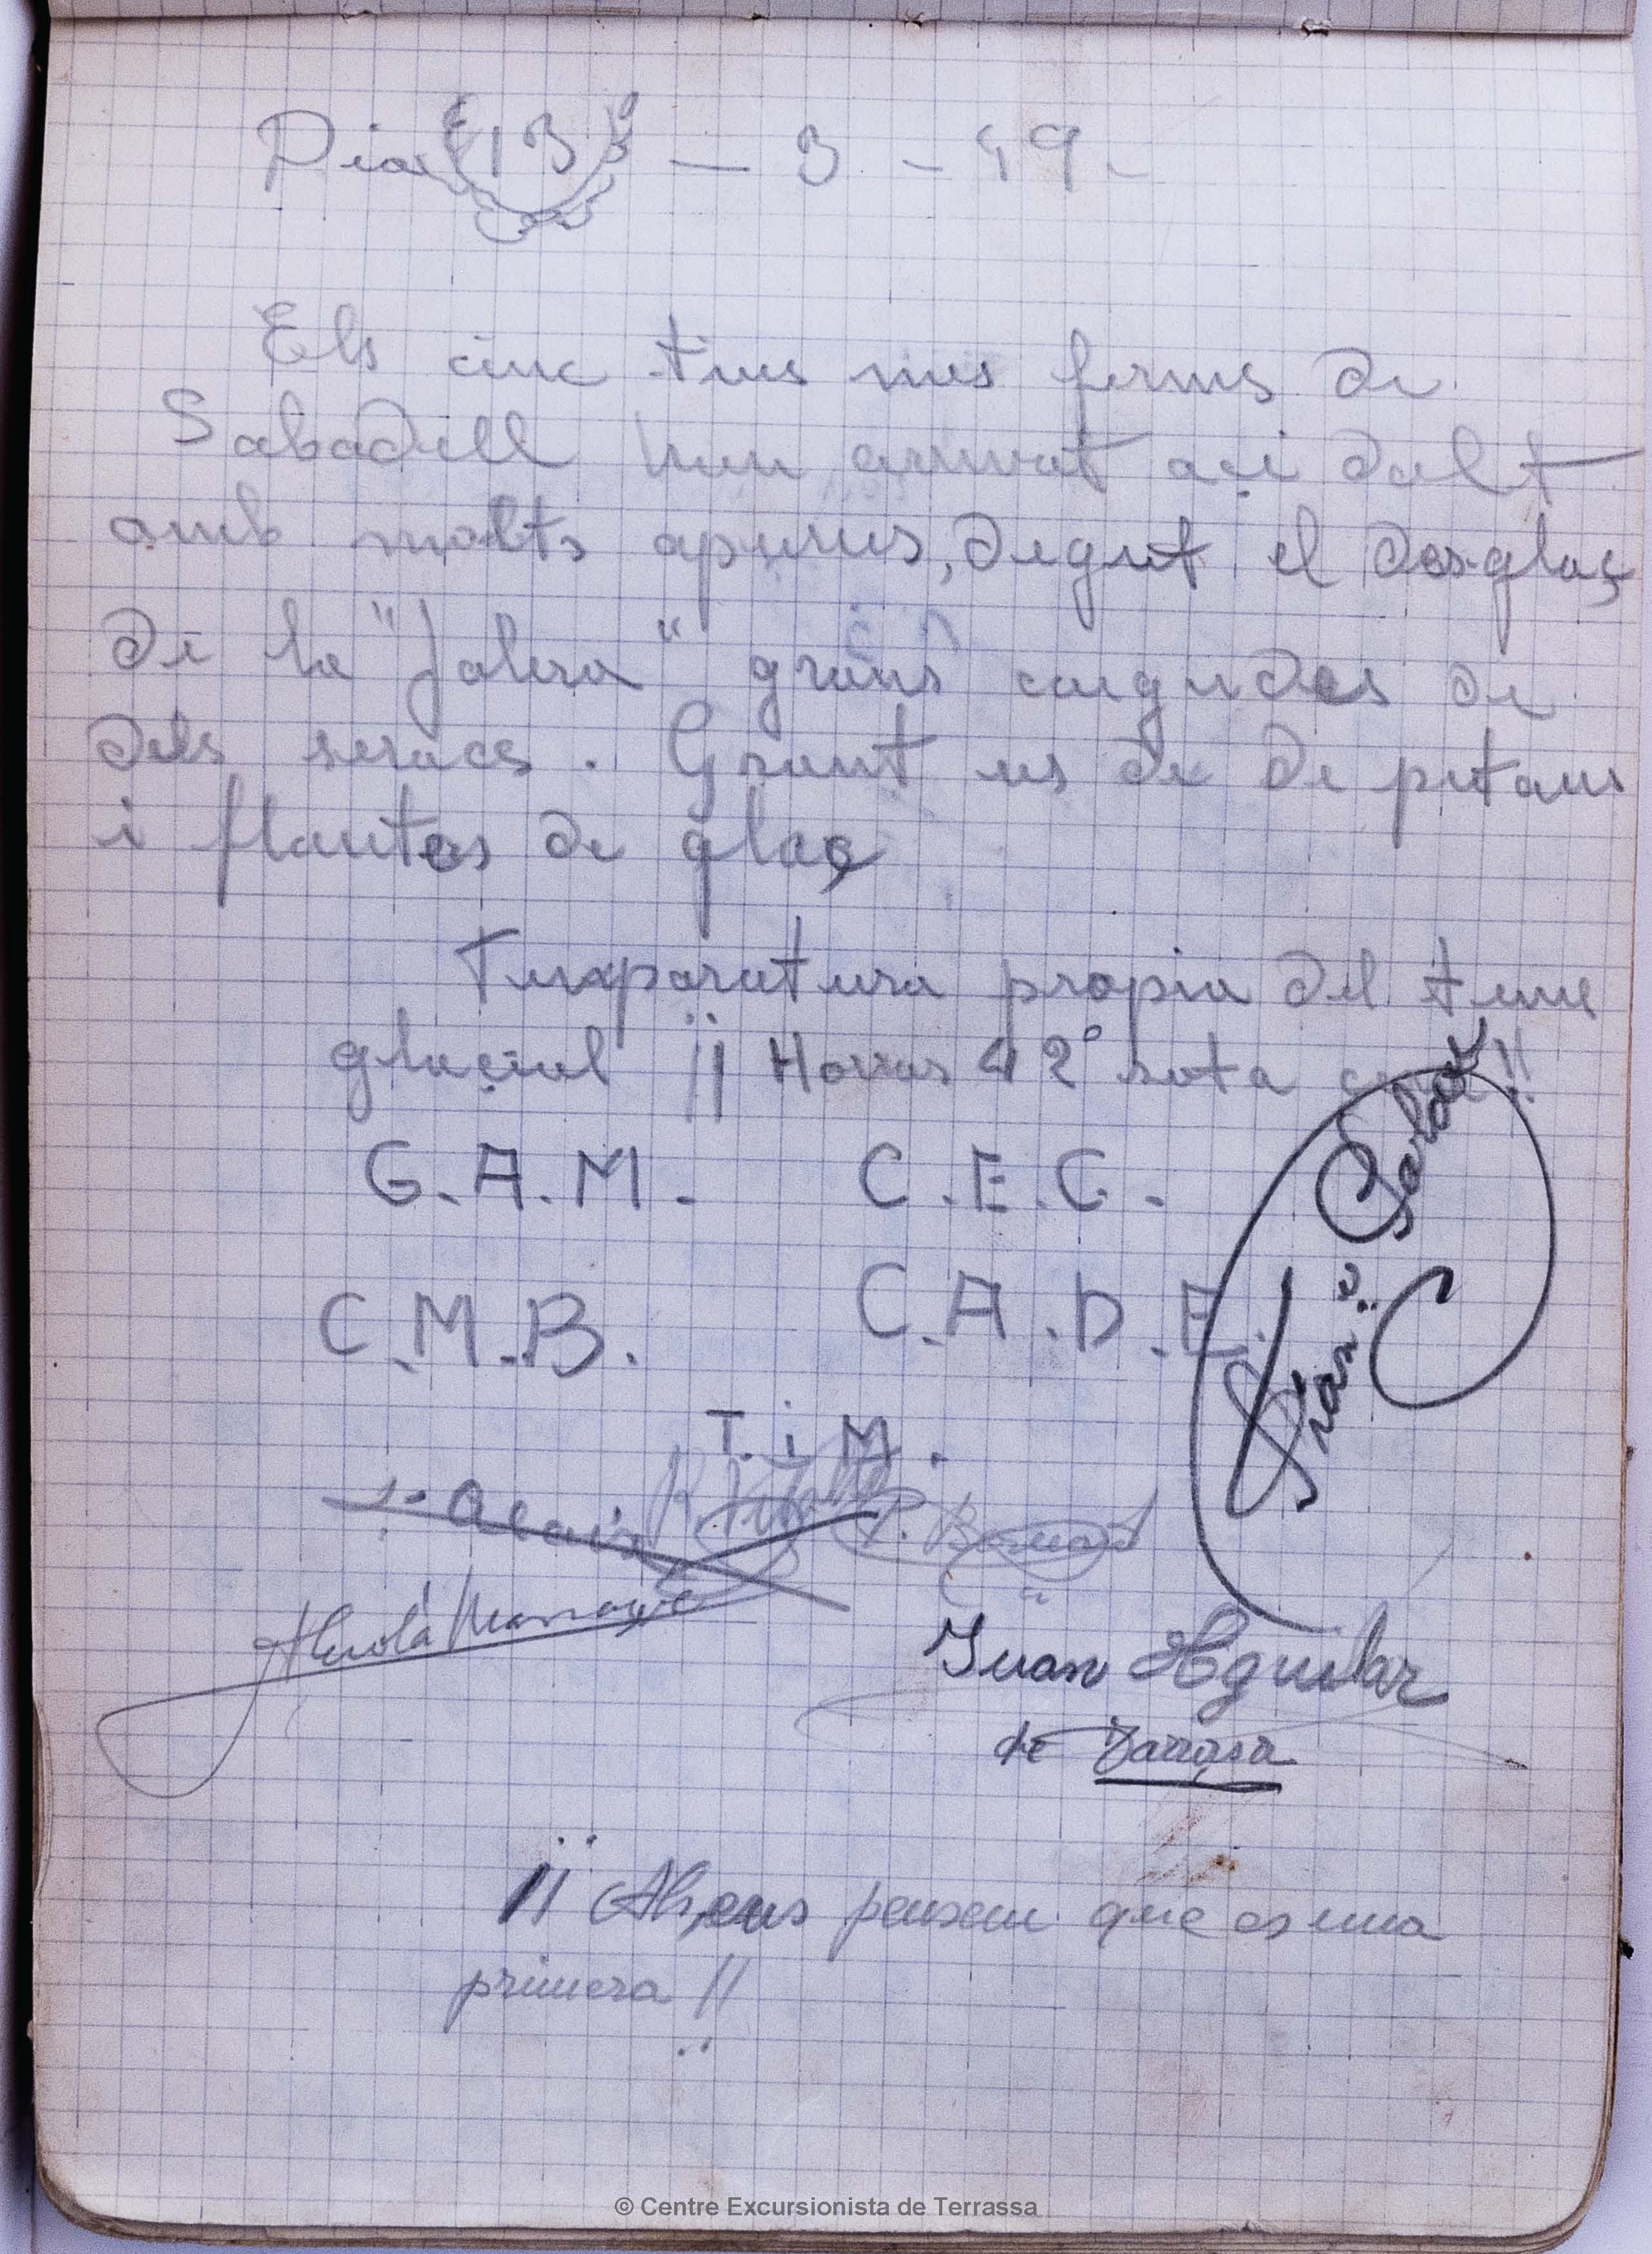 Dia 13 — 3 - 49 -
Els cinc tius mes ferms de
Sabadell han arrivat açi dalt
amb molts apurus, degut el desglaç
de la "Jalera" grans caigudes de
dels seracs. Grant us de de pitans
i flautes de glaç
Temparatura propia del temc
glacial ¡¡ Horras 42° sota !!
G.A.M. - C.E.C. -
C.M.B. C.A.D.E.
T.i M.
Juan Aguilar
de Tarrasa
¡¡ Alseus pensem que es una
primera !!
© Centre Excursionista de Terrassa